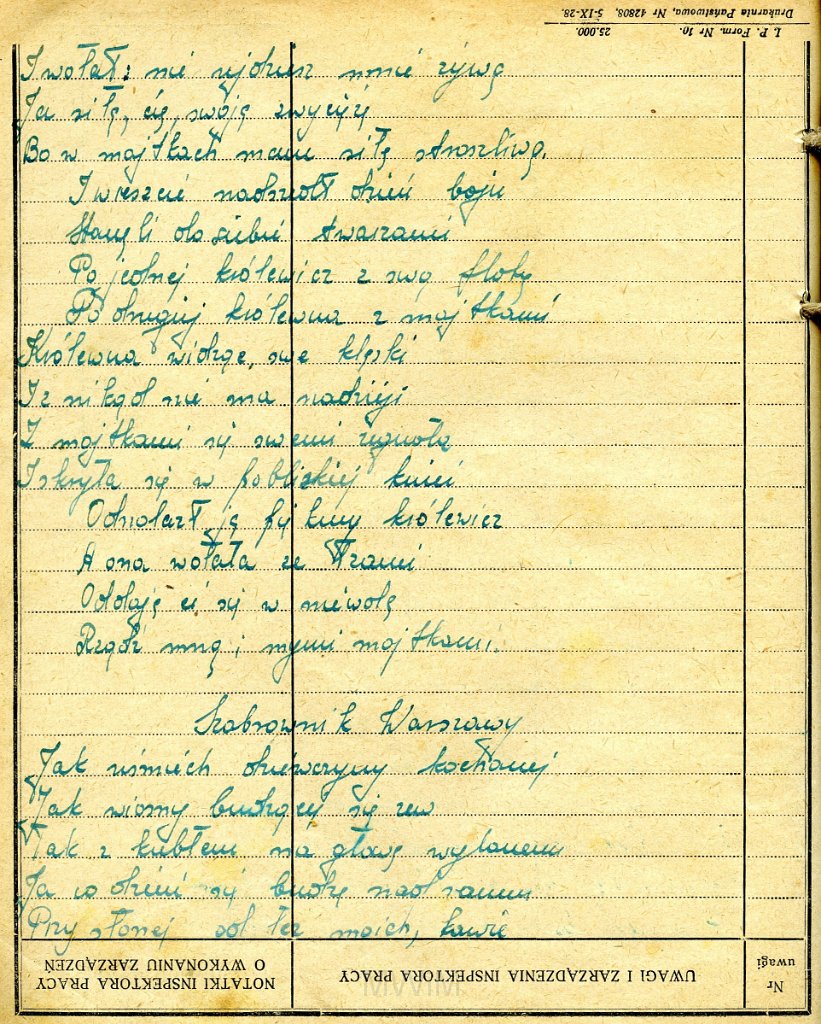 Drukarnia Państwowa, Nr 42808, 5-IX-28.
I. P. Form. Nr 10. 25.000.
I wołał: nie ujdziesz mnie żywą
Ja siłę, cię, swoję zwycięż
Bo w majtkach mam siłę straszliwą.
I wreszcie nadszedł dzień boju
Stanęli do siebie twarzami
Po jednej królewicz z swą flotą
Po drugiej królewna z majtkami
Królewna widząc, swe klęski
I znikąd nie ma nadzieji
Z majtkami się swemi
I skryła się w pobliskiej kniei
Odnalazł ją królewicz
A ona wołała ze łzami
Oddaję ci się w niewolę
Rządź mną i mymi majtkami.
Szabrownik Warszawy
Jak uśmiech dziewczyny kochanej
Jak wiosny budzącej się zew
Jak z kubłem na głowę wylanem
Ja co dzień się budzę nad ranem
Przy słonej od łez moich, kawie
NOTATKI INSPEKTORA PRACY O WYKONANIU ZARZĄDZEŃ
UWAGI I ZARZĄDZENIA INSPEKTORA PRACY
Nr uwagi